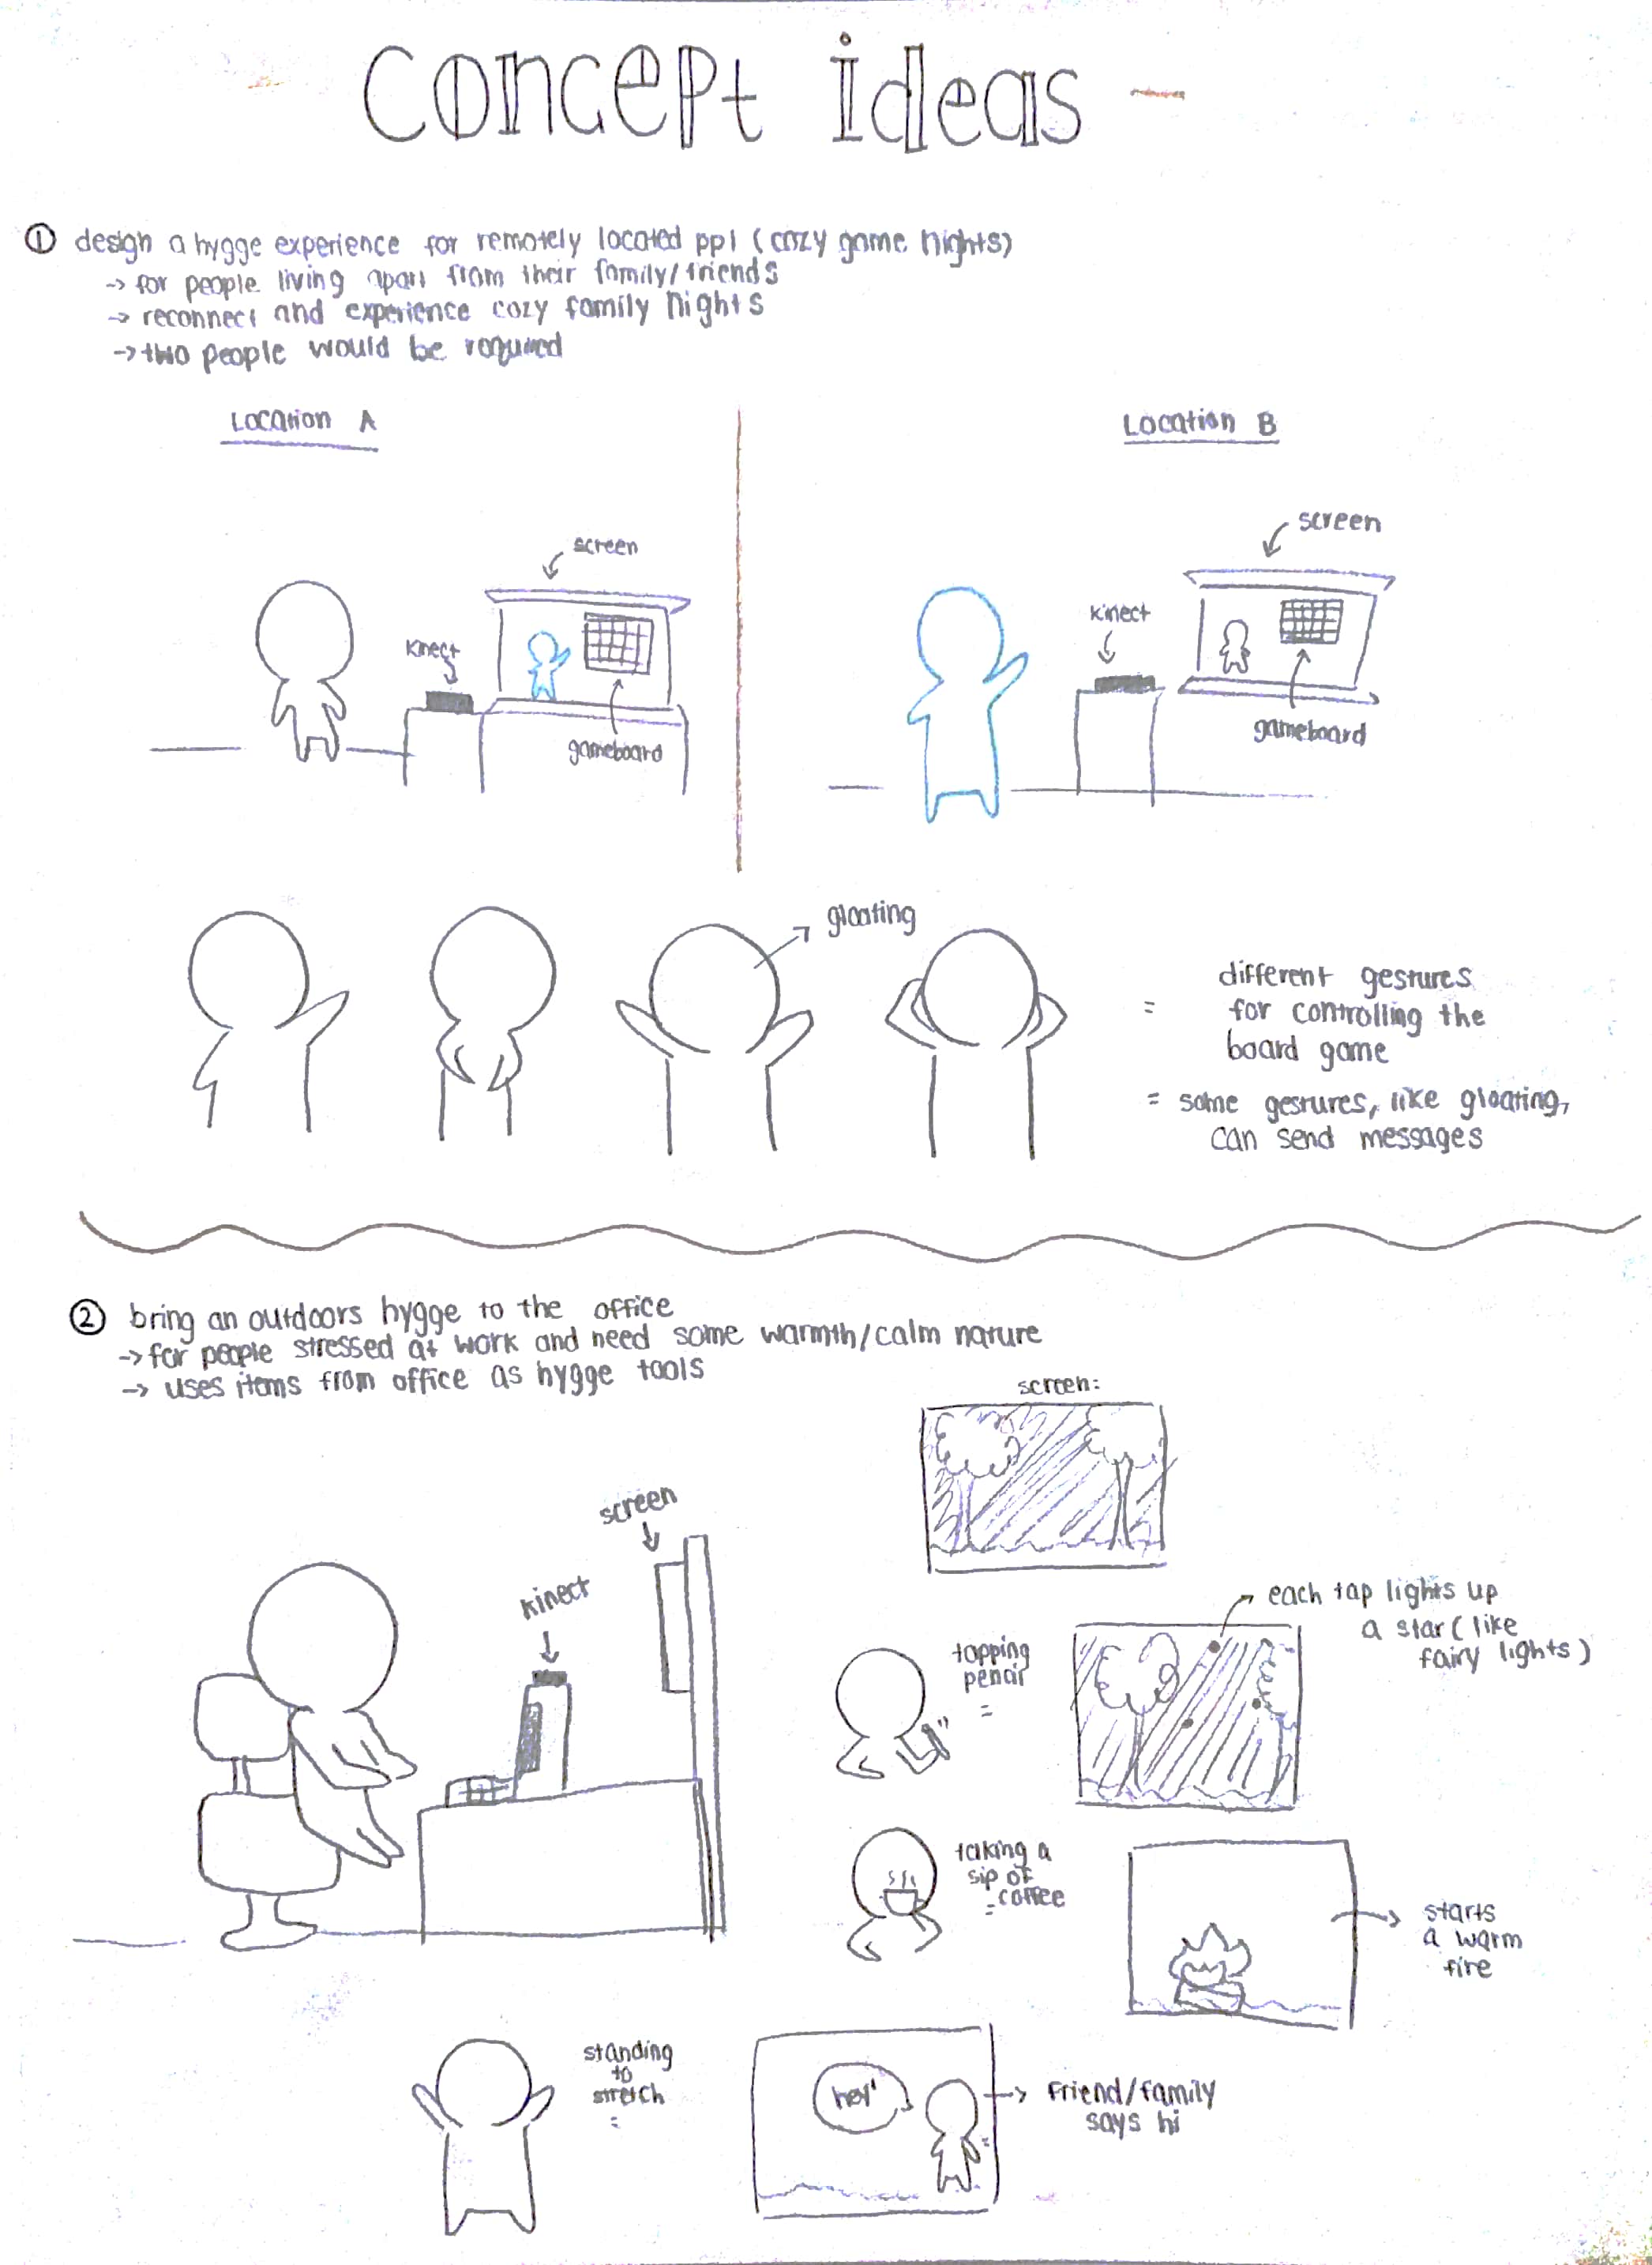 Concept ideas -
① design a hygge experience for remotely located ppl (cozy game nights)
-> for people living apart from their family/friends
-> reconnect and experience cozy family nights
-> two people would be required
Location A
Location B
screen
kinect
gameboard
screen
kinect
gameboard
gloating
= different gestures
for controlling the
board game
= some gestures, like gloating,
can send messages
② bring an outdoors hygge to the office
-> for people stressed at work and need some warmth/calm nature
-> uses items from office as hygge tools
screen:
screen
kinect
tapping
pencil
=
each tap lights up
a star (like
fairy lights)
taking a
sip of
= coffee
starts
a warm
fire
standing
to
stretch
=
hey!
Friend/family
says hi